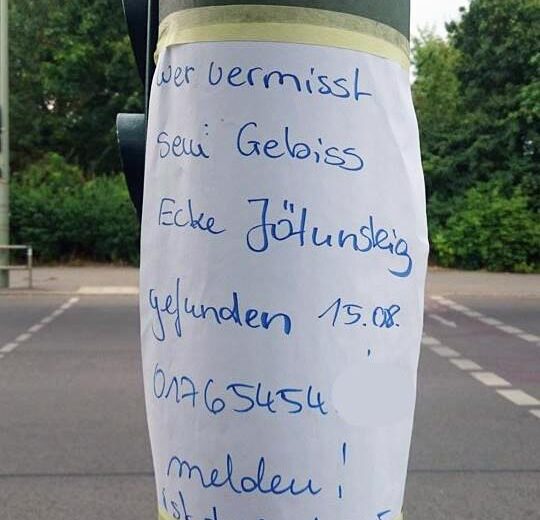 wer vermisst
sein Gebiss
Ecke Jötunsteig
gefunden 15.08.
01765454
melden!